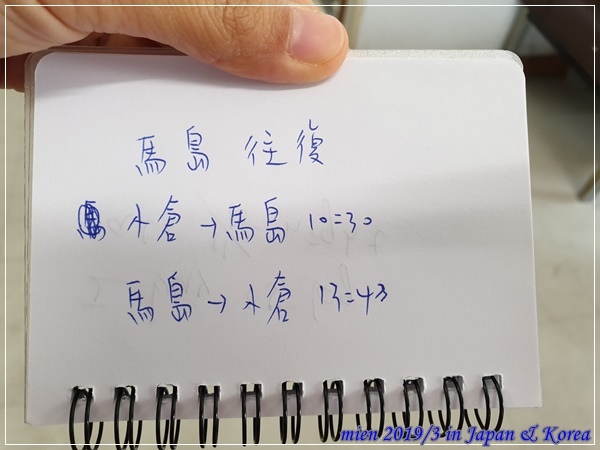 馬島 往復
小倉→馬島 10:30
馬島→小倉 13:43
mien 2019/3 in Japan & Korea